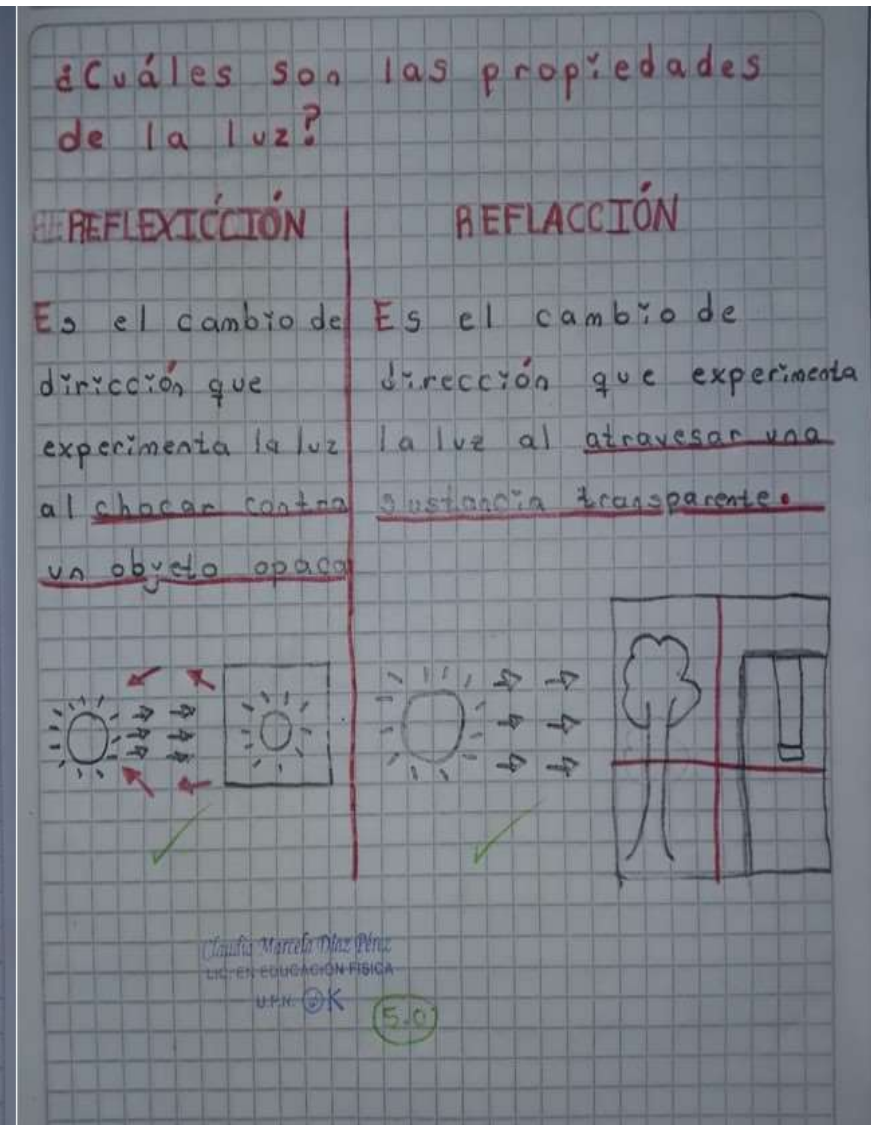 ¿Cuáles son las propiedades
de la luz?
REFLEXICCIÓN
Es el cambio de
diricción que
experimenta la luz
al chocar contra
un objeto opaco
REFLACCIÓN
Es el cambio de
dirección que experimenta
la luz al atravesar una
sustancia transparente.
Claudia Marcela Díaz Pérez
LIC. EN EDUCACIÓN FÍSICA
U.P.N. OK
5.0